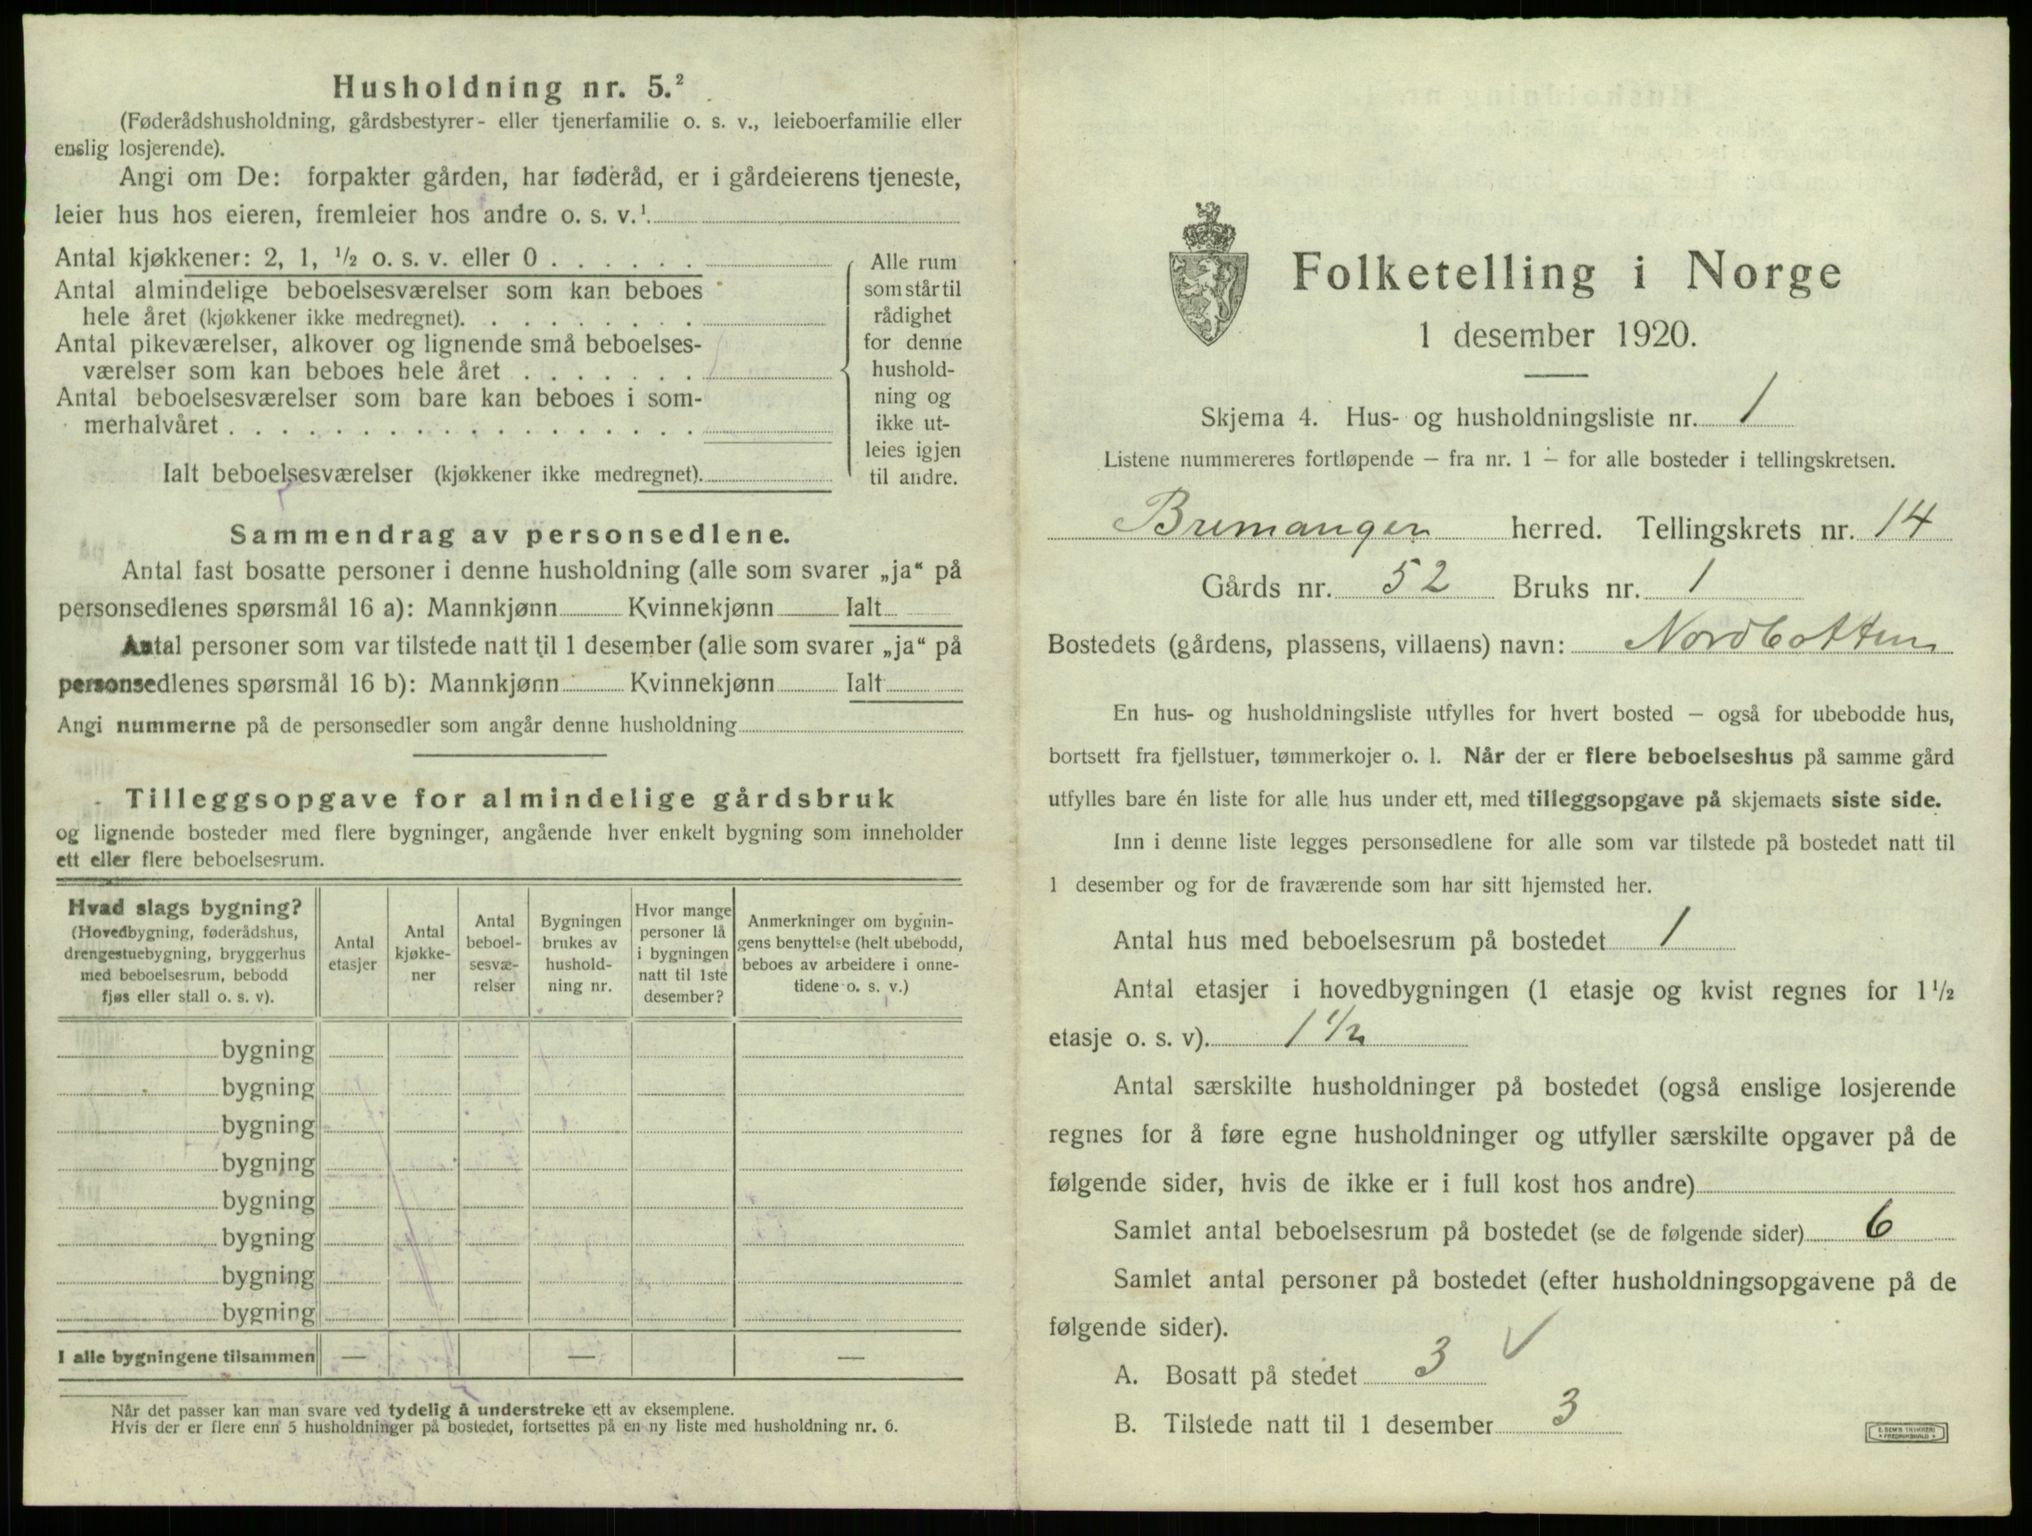 Husholdning nr. 5.²
(Føderådshusholdning, gårdsbestyrer- eller tjenerfamilie o. s. v., leieboerfamilie eller
enslig losjerende).
Angi om De: forpakter gården, har føderåd, er i gårdeierens tjeneste,
leier hus hos eieren, fremleier hos andre o. s. v.¹
Antal kjøkkener: 2, 1, ½ o. s. v. eller 0
Antal almindelige beboelsesværelser som kan beboes
hele året (kjøkkener ikke medregnet).
Antal pikeværelser, alkover og lignende små beboelses-
værelser som kan beboes hele året
Antal beboelsesværelser som bare kan beboes i som-
merhalvåret
Ialt beboelsesværelser (kjøkkener ikke medregnet).
Alle rum
som står til
rådighet
for denne
hushold-
ning og
ikke ut-
leies igjen
til andre.
Sammendrag av personsedlene.
Antal fast bosatte personer i denne husholdning (alle som svarer „ja“ på
personsedlenes spørsmål 16 a): Mannkjønn Kvinnekjønn Ialt
Antal personer som var tilstede natt til 1 desember (alle som svarer „ja“ på
personsedlenes spørsmål 16 b): Mannkjønn Kvinnekjønn Ialt
Angi nummerne på de personsedler som angår denne husholdning
Tilleggsopgave for almindelige gårdsbruk
og lignende bosteder med flere bygninger, angående hver enkelt bygning som inneholder
ett eller flere beboelsesrum.
Hvad slags bygning?
(Hovedbygning, føderådshus,
drengestuebygning, bryggerhus
med beboelsesrum, bebodd
fjøs eller stall o. s. v).
Antal
etasjer
Antal
kjøkke-
ner
Antal
beboel-
sesvæ-
relser
Bygningen
brukes av
hushold-
ning nr.
Hvor mange
personer lå
i bygningen
natt til 1ste
desember?
Anmerkninger om bygnin-
gens benyttelse (helt ubebodd,
beboes av arbeidere i onne-
tidene o. s. v.)
bygning
bygning
bygning
bygning
bygning
bygning
bygning
bygning
I alle bygningene tilsammen — — —
Når det passer kan man svare ved tydelig å understreke ett av eksemplene.
Hvis der er flere enn 5 husholdninger på bostedet, fortsettes på en ny liste med husholdning nr. 6.
Folketelling i Norge
1 desember 1920.
Skjema 4. Hus- og husholdningsliste nr. 1
Listene nummereres fortløpende – fra nr. 1 – for alle bosteder i tellingskretsen.
Bremanger herred. Tellingskrets nr. 14
Gårds nr. 52 Bruks nr. 1
Bostedets (gårdens, plassens, villaens) navn: Nordbotten
En hus- og husholdningsliste utfylles for hvert bosted – også for ubebodde hus,
bortsett fra fjellstuer, tømmerkojer o. l. Når der er flere beboelseshus på samme gård
utfylles bare én liste for alle hus under ett, med tilleggsopgave på skjemaets siste side.
Inn i denne liste legges personsedlene for alle som var tilstede på bostedet natt til
1 desember og for de fraværende som har sitt hjemsted her.
Antal hus med beboelsesrum på bostedet 1
Antal etasjer i hovedbygningen (1 etasje og kvist regnes for 1½
etasje o. s. v). 1½
Antal særskilte husholdninger på bostedet (også enslige losjerende
regnes for å føre egne husholdninger og utfyller særskilte opgaver på de
følgende sider, hvis de ikke er i full kost hos andre)
Samlet antal beboelsesrum på bostedet (se de følgende sider) 6
Samlet antal personer på bostedet (efter husholdningsopgavene på de
følgende sider).
A. Bosatt på stedet 3 √
B. Tilstede natt til 1 desember 3
E. SEM'S TRYKKERI
FREDRIKSHALD